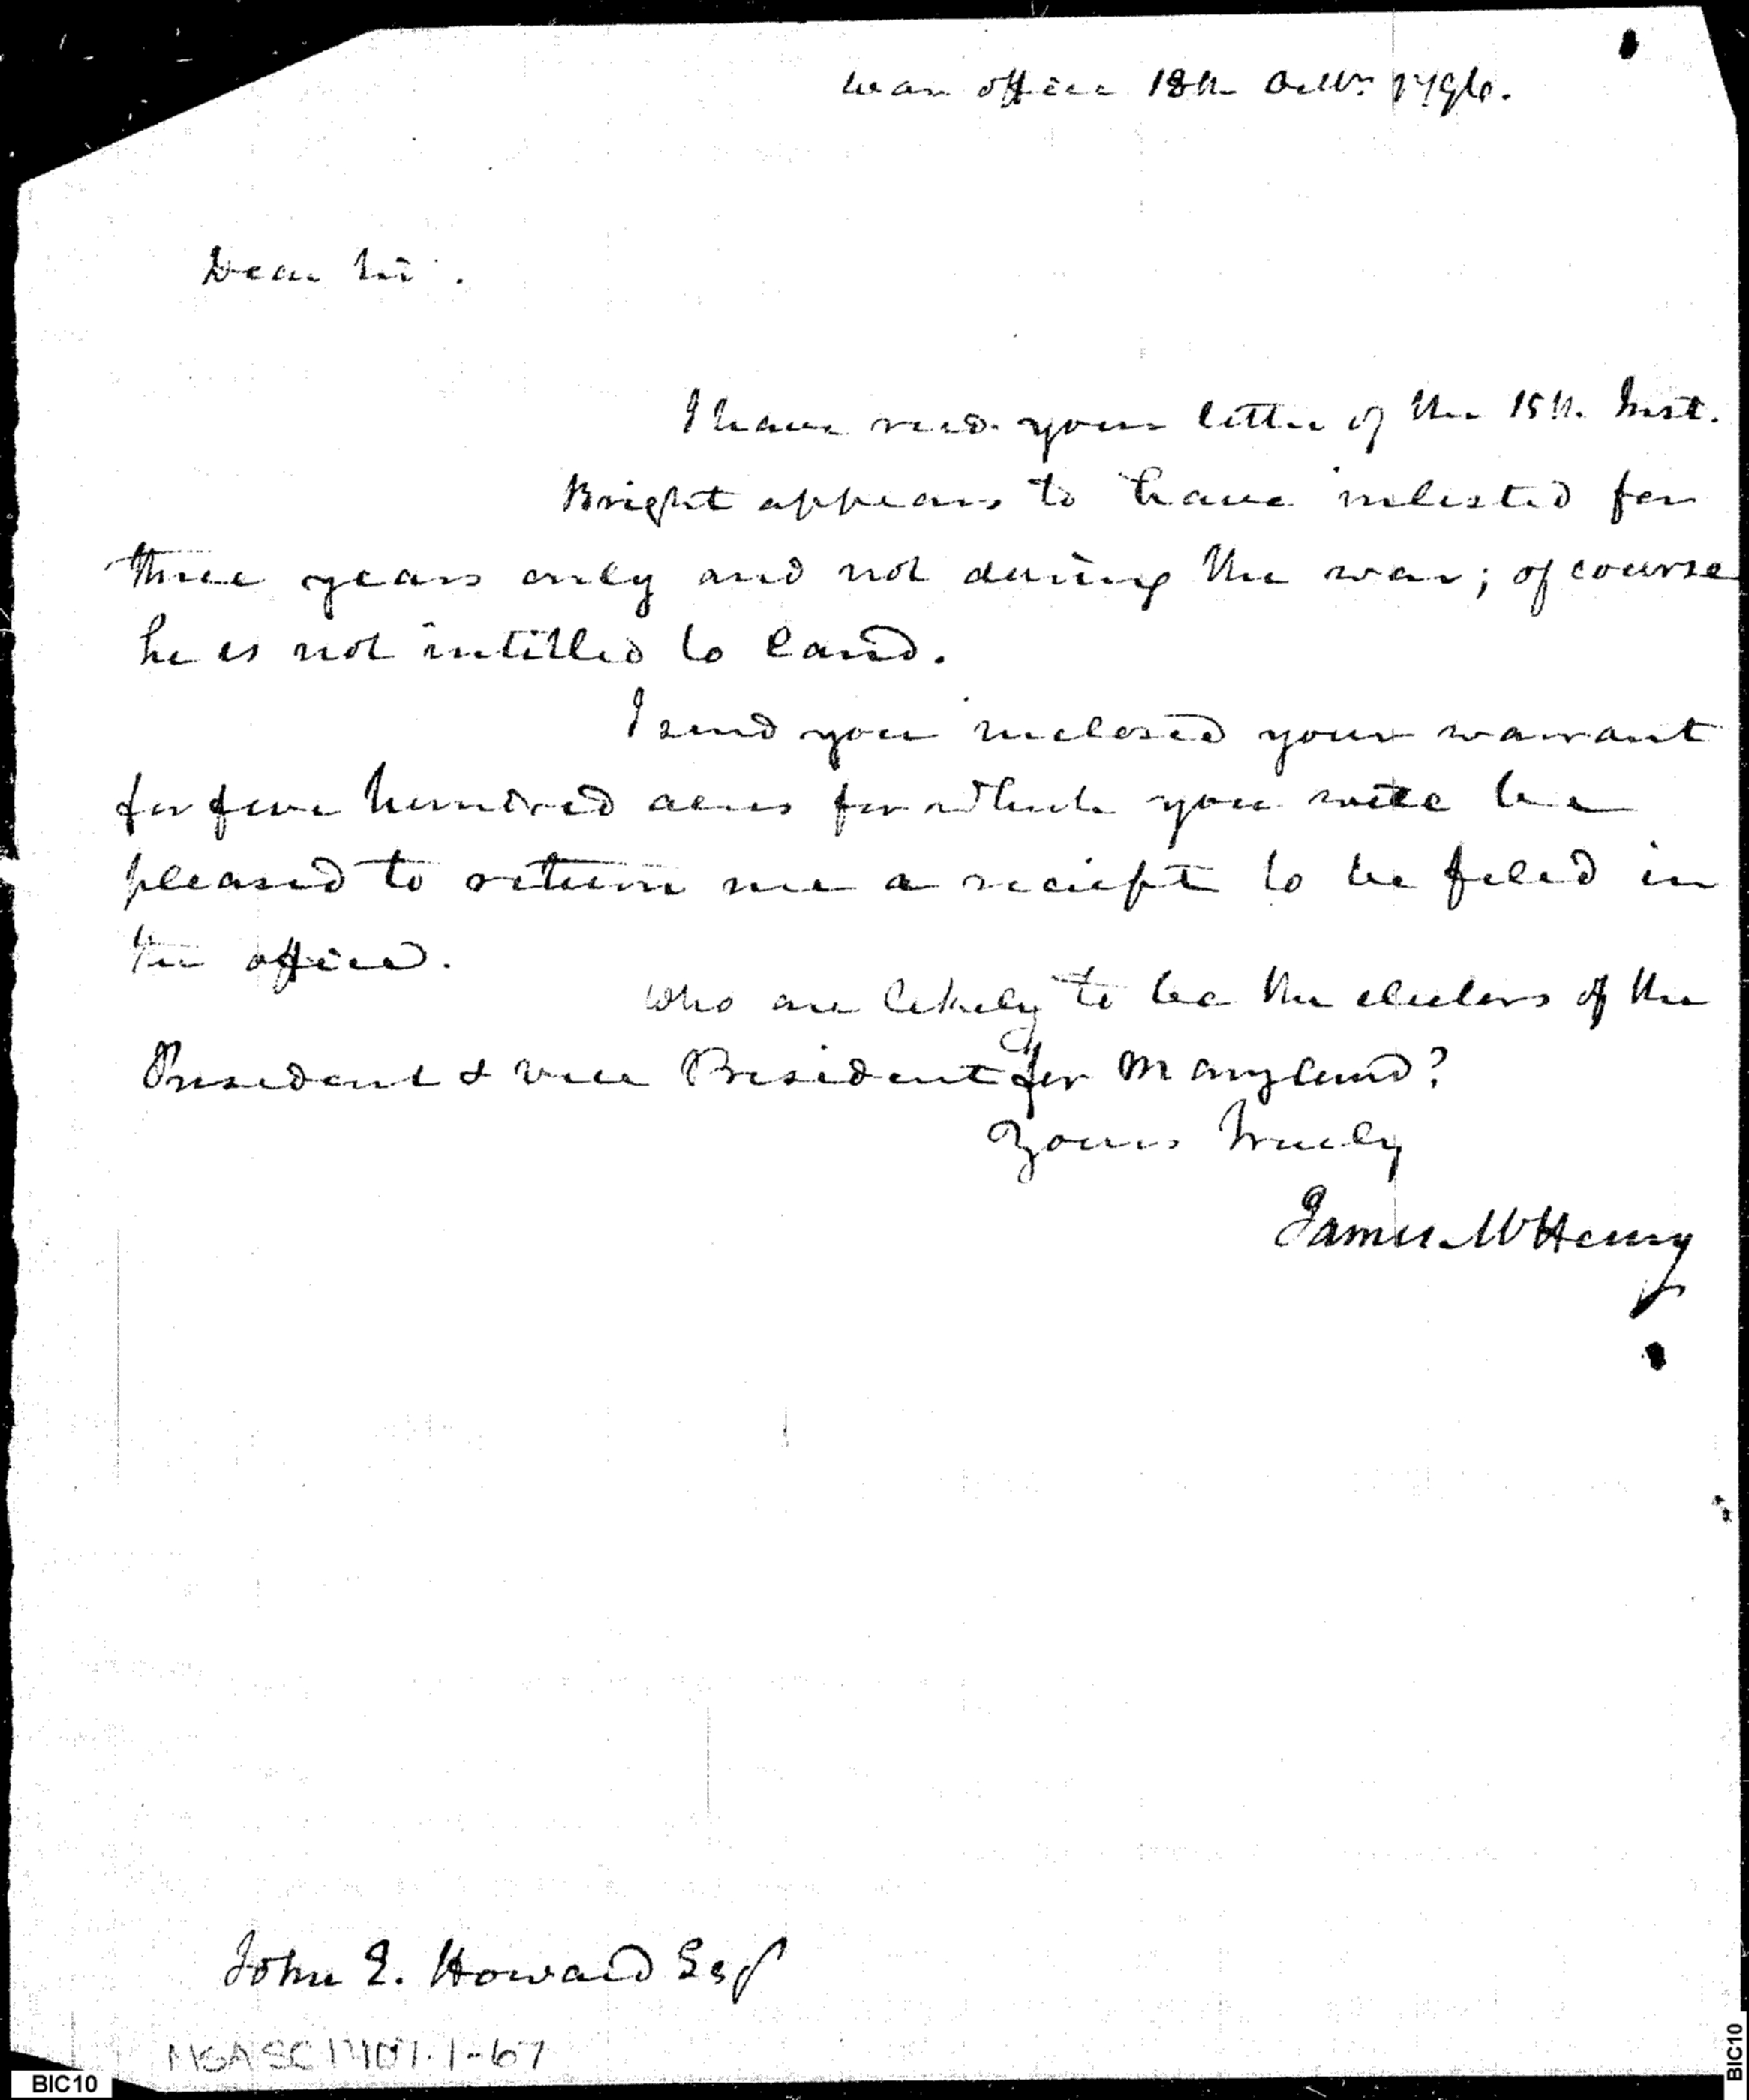 War office 18th Octbr 1796.
Dear Sir.
I have recd. your letter of the 15th. Inst.
Bright appears to have inlisted for
three years only and not during the war; of course
he is not intitled to land.
I send you inclosed your warrant
for five hundred acres for which you will be
pleased to return me a reciept to be filed in
the office.
Who are likely to be the electors of the
President & Vice President for Maryland?
Yours truly
James McHenry
John E. Howard Esqr
BIC10
BIC10